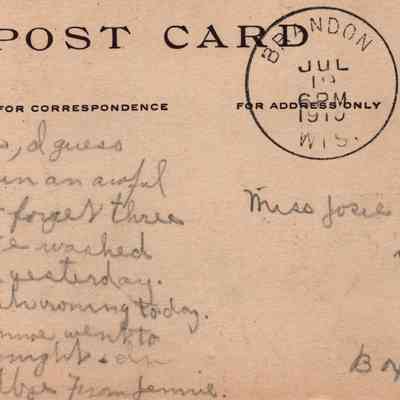 POST CARD
BRANDON
JUL
6PM
WIS.
FOR CORRESPONDENCE
FOR ADDRESS ONLY
I guess
in an awful
forget three
washed
yesterday.
ironing today.
went to
night
From Jennie.
Miss Josie
Box